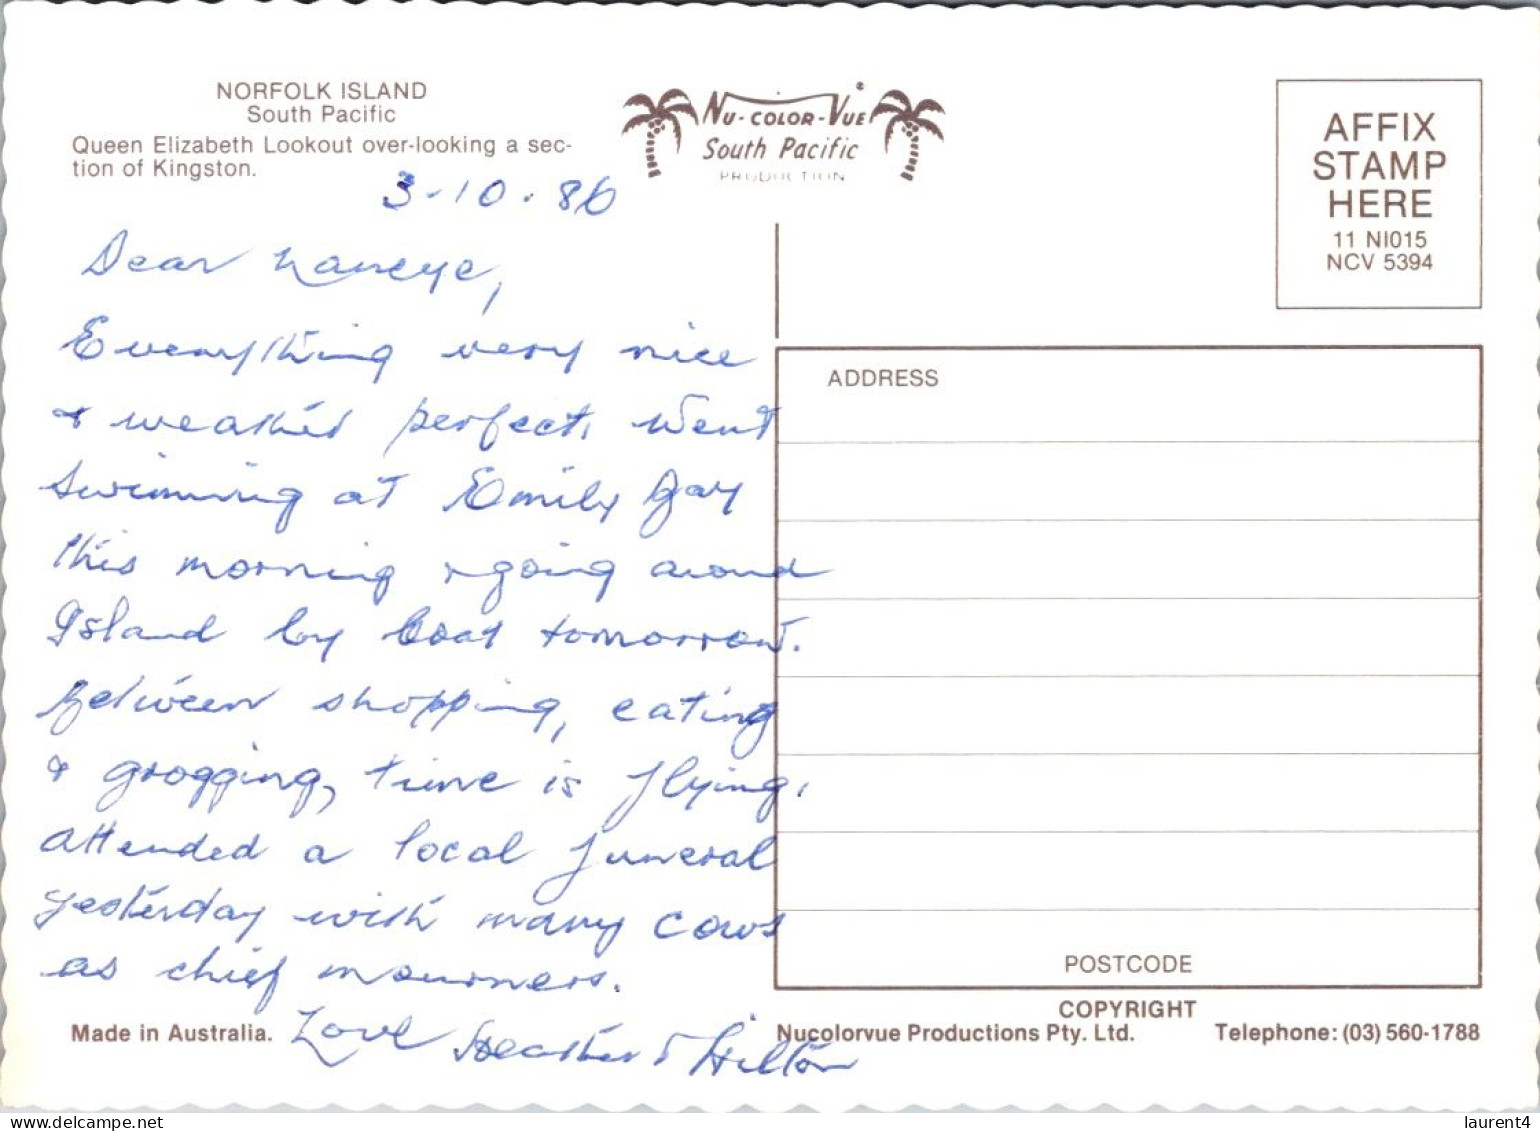 NORFOLK ISLAND
South Pacific
Queen Elizabeth Lookout over-looking a sec-
tion of Kingston.
NU-COLOR-VUE®
South Pacific
PRODUCTION
AFFIX
STAMP
HERE
11 NI015
NCV 5394
3-10-86
Dear Nancye,
Everything very nice
& weather perfect. Went
swimming at Emily Bay
this morning & going around
Island by boat tomorrow.
Between shopping, eating
& grogging, time is flying.
Attended a local funeral
yesterday with many cows
as chief mourners.
Love Heather & Hilton
ADDRESS
POSTCODE
COPYRIGHT
Made in Australia.
Nucolorvue Productions Pty. Ltd.
Telephone: (03) 560-1788
https://www.delcampe.net
laurent4